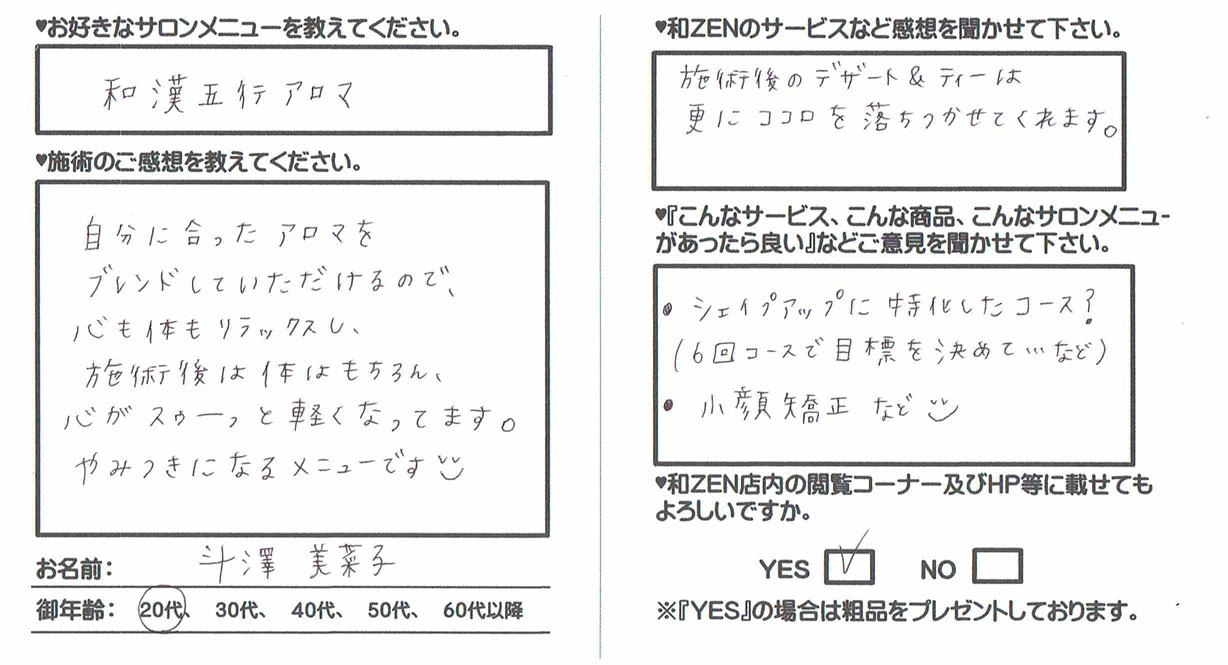 ♥お好きなサロンメニューを教えてください。
和漢五行アロマ
♥施術のご感想を教えてください。
自分に合ったアロマを
ブレンドしていただけるので、
心も体もリラックスし、
施術後は体はもちろん、
心がスゥーっと軽くなってます。
やみつきになるメニューです
お名前: 斗澤 美菜子
御年齢: 20代、 30代、 40代、 50代、 60代以降
♥和ZENのサービスなど感想を聞かせて下さい。
施術後のデザート&ティーは
更にココロを落ちつかせてくれます。
♥『こんなサービス、こんな商品、こんなサロンメニュー
があったら良い』などご意見を聞かせて下さい。
• シェイプアップに特化したコース?
(6回コースで目標を決めて…など)
• 小顔矯正 など
♥和ZEN店内の閲覧コーナー及びHP等に載せても
よろしいですか。
YES ✓ NO
※『YES』の場合は粗品をプレゼントしております。